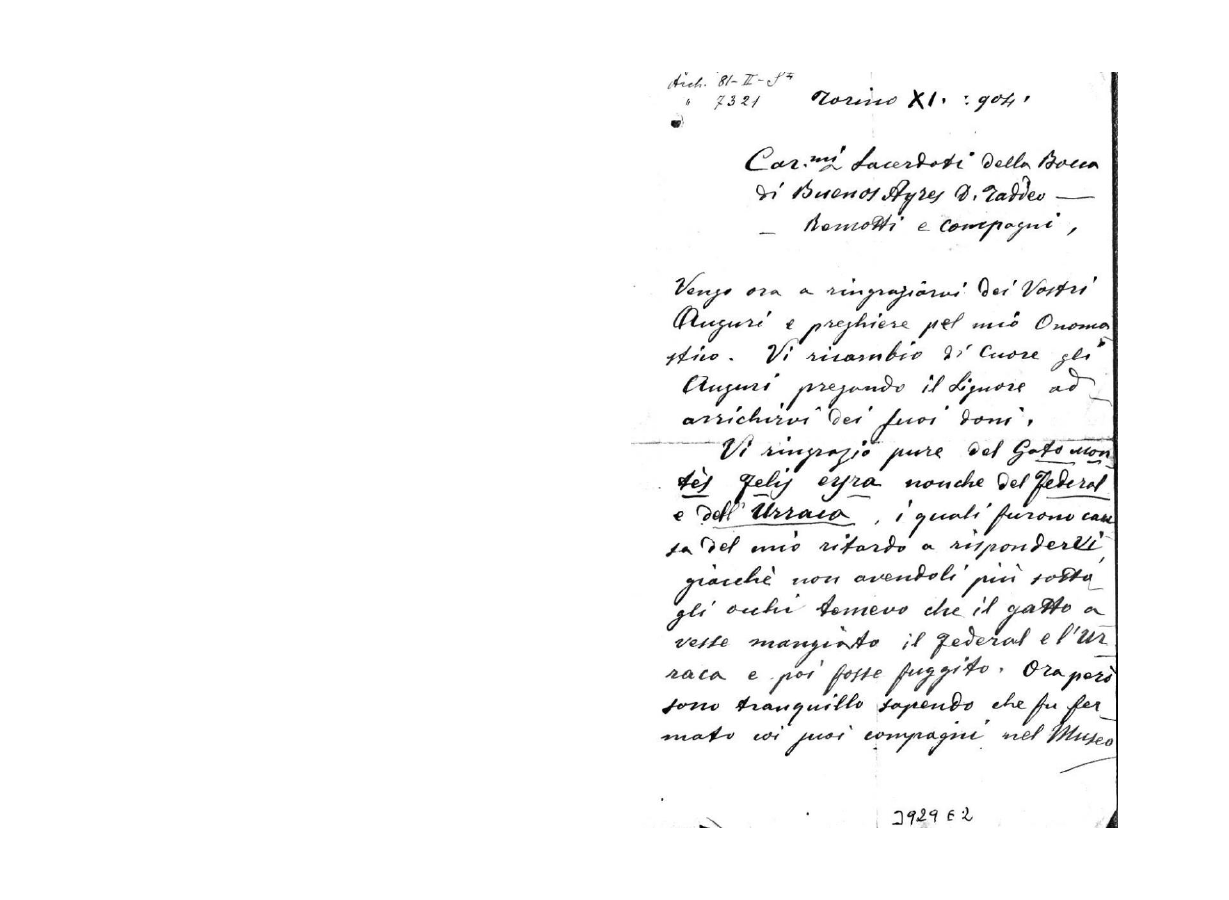 Arch. 81-II-
" 7321
Torino XI. : 904.
Car.mi Sacerdoti della Bocca
di Buenos Ayres D. Taddeo —
– Remotti e compagni,
Vengo ora a ringraziarvi dei Vostri
Auguri e preghiere pel mio Onoma
stico. Vi ricambio di Cuore gli
Auguri pregando il Signore ad
arrichirvi dei suoi doni.
Vi ringrazio pure del Gato mon
tès Felis eyra nonche del Federal
e dell'Urraca, i quali furono cau
sa del mio ritardo a rispondervi,
giacchè non avendoli più sotto
gli occhi temevo che il gatto a
vesse mangiato il Federal e l'Ur
raca e poi fosse fuggito. Ora però
sono tranquillo sapendo che fu fer
mato coi suoi compagni nel Museo
3929 E 2